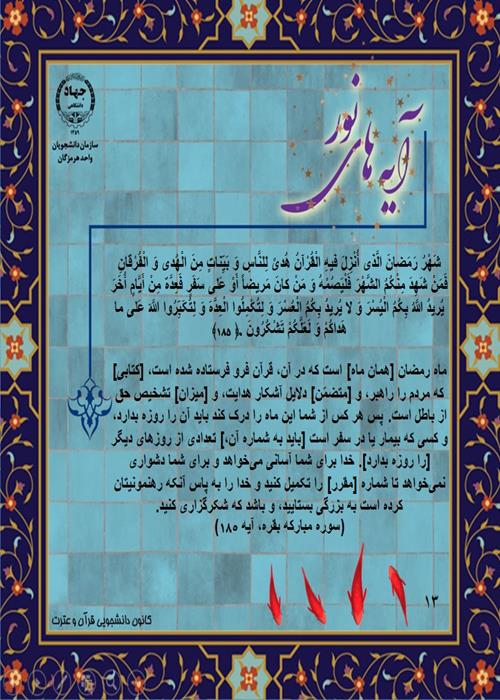 آیه های نور
جهاد
دانشگاهی
۱۳۵۹
سازمان دانشجویان
واحد هرمزگان
شَهْرُ رَمَضانَ الَّذی أُنْزِلَ فیهِ الْقُرْآنُ هُدیً لِلنَّاسِ وَ بَیِّناتٍ مِنَ الْهُدی وَ الْفُرْقانِ
فَمَنْ شَهِدَ مِنْکُمُ الشَّهْرَ فَلْیَصُمْهُ وَ مَنْ کانَ مَریضاً أَوْ عَلی سَفَرٍ فَعِدَّةٌ مِنْ أَیَّامٍ أُخَرَ
یُریدُ اللَّهُ بِکُمُ الْیُسْرَ وَ لا یُریدُ بِکُمُ الْعُسْرَ وَ لِتُکْمِلُوا الْعِدَّةَ وَ لِتُکَبِّرُوا اللَّهَ عَلی ما
هَداکُمْ وَ لَعَلَّکُمْ تَشْکُرُونَ .﴿ ۱۸۵﴾
ماه رمضان [همان ماه] است که در آن، قرآن فرو فرستاده شده است، [کتابی]
که مردم را راهبر، و [متضمّن] دلایل آشکار هدایت، و [میزان] تشخیص حق
از باطل است. پس هر کس از شما این ماه را درک کند باید آن را روزه بدارد،
و کسی که بیمار یا در سفر است [باید به شماره آن،] تعدادی از روزهای دیگر
[را روزه بدارد]. خدا برای شما آسانی می‌خواهد و برای شما دشواری
نمی‌خواهد تا شماره [مقرر] را تکمیل کنید و خدا را به پاس آنکه رهنمونیتان
کرده است به بزرگی بستایید، و باشد که شکرگزاری کنید.
(سوره مبارکه بقره، آیه ۱۸۵)
۱۳
کانون دانشجویی قرآن و عترت